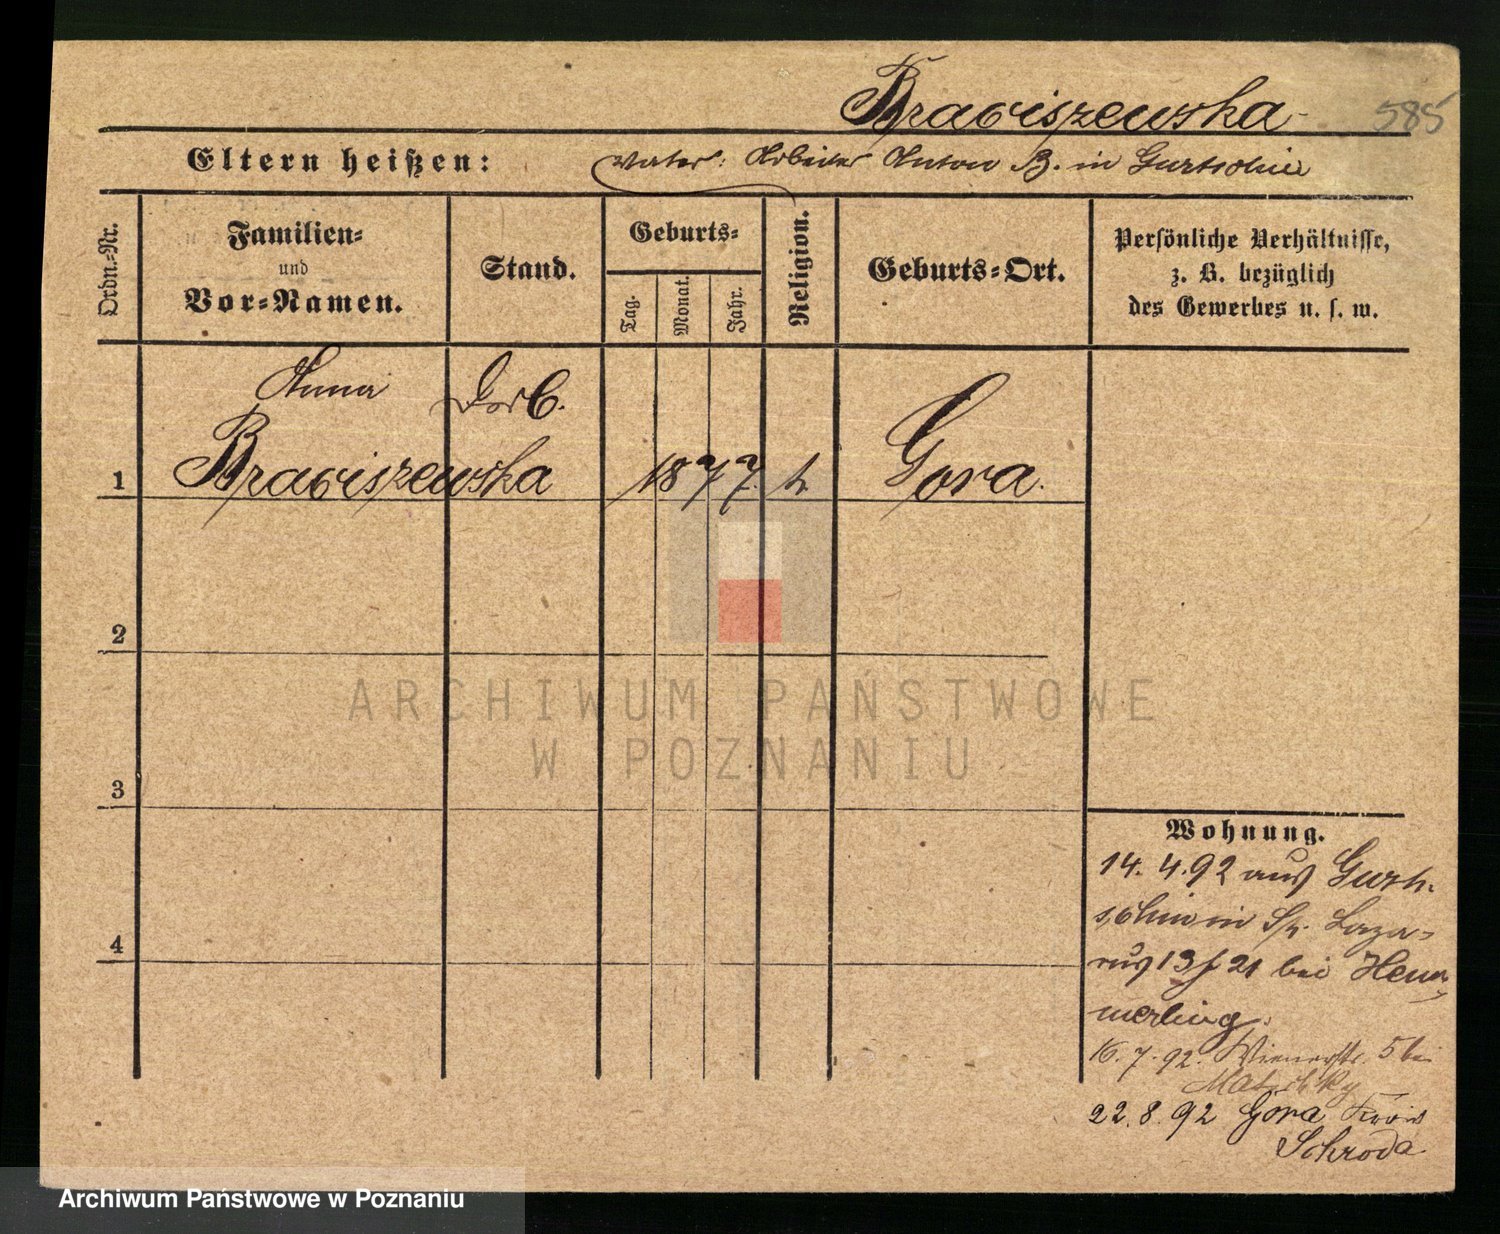 Braciszewska
585
Eltern heißen: Vater: Arbeiter Anton B. in Gurtschin
Ordn.-Nr.
Familien-
und
Vor-Namen.
Stand.
Geburts-
Tag.
Monat.
Jahr.
Religion.
Geburts-Ort.
Persönliche Verhältnisse,
z. B. bezüglich
des Gewerbes u. s. w.
Anna
1 Braciszewska 1877 k. Gora.
2
3
4
Wohnung.
14. 4. 92 aus Gurt-
schin in St. Laza-
rus 13 f 21 bei Hem-
merling.
16. 7. 92. Wienerstr. 5 bei
22. 8. 92 Góra Kreis
Schroda
ARCHIWUM PAŃSTWOWE
W POZNANIU
Archiwum Państwowe w Poznaniu